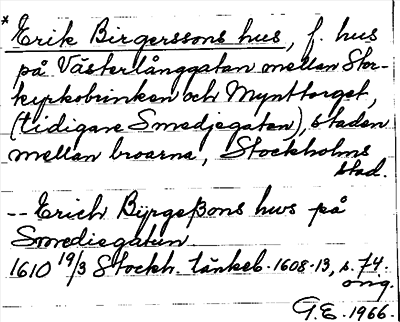 * Erik Birgerssons hus, f. hus
på Västerlånggatan mellan Stor-
kyrkobrinken och Mynttorget,
(tidigare Smedjegatan), staden
mellan broarna, Stockholms
stad.
-- Erich Byrgeßons hws på
Smediegatun
1610 19/3 Stockh. tänkeb. 1608-13, s. 74.
orig.
G.E. 1966.